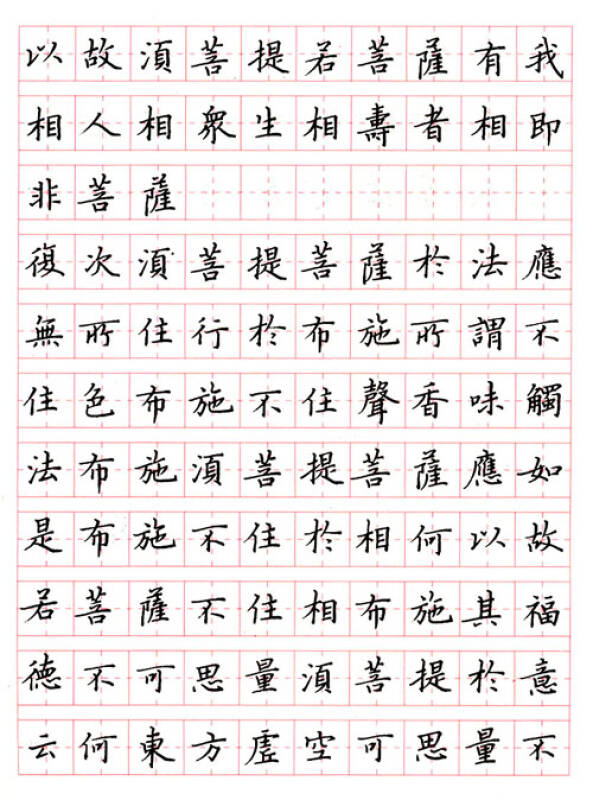 以故須菩提若菩薩有我
相人相眾生相壽者相即
非菩薩
復次須菩提菩薩於法應
無所住行於布施所謂不
住色布施不住聲香味觸
法布施須菩提菩薩應如
是布施不住於相何以故
若菩薩不住相布施其福
德不可思量須菩提於意
云何東方虛空可思量不